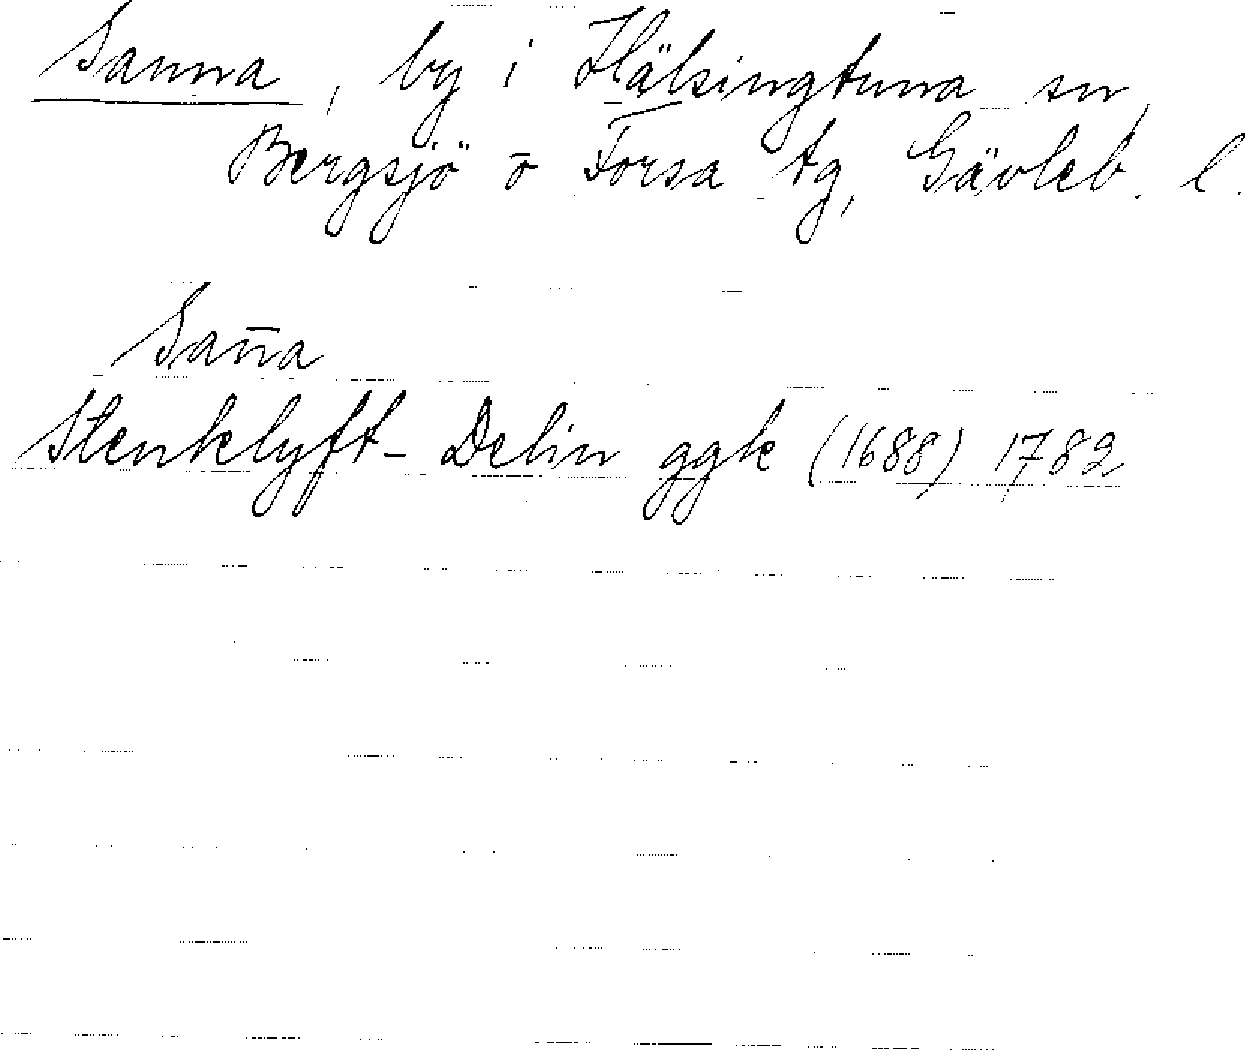 Sanna, by i Hälsingtuna sn,
Bergsjö o Forsa tg, Gävleb. l.
San̄a
Stenklyft-Delin ggk (1688) 1782